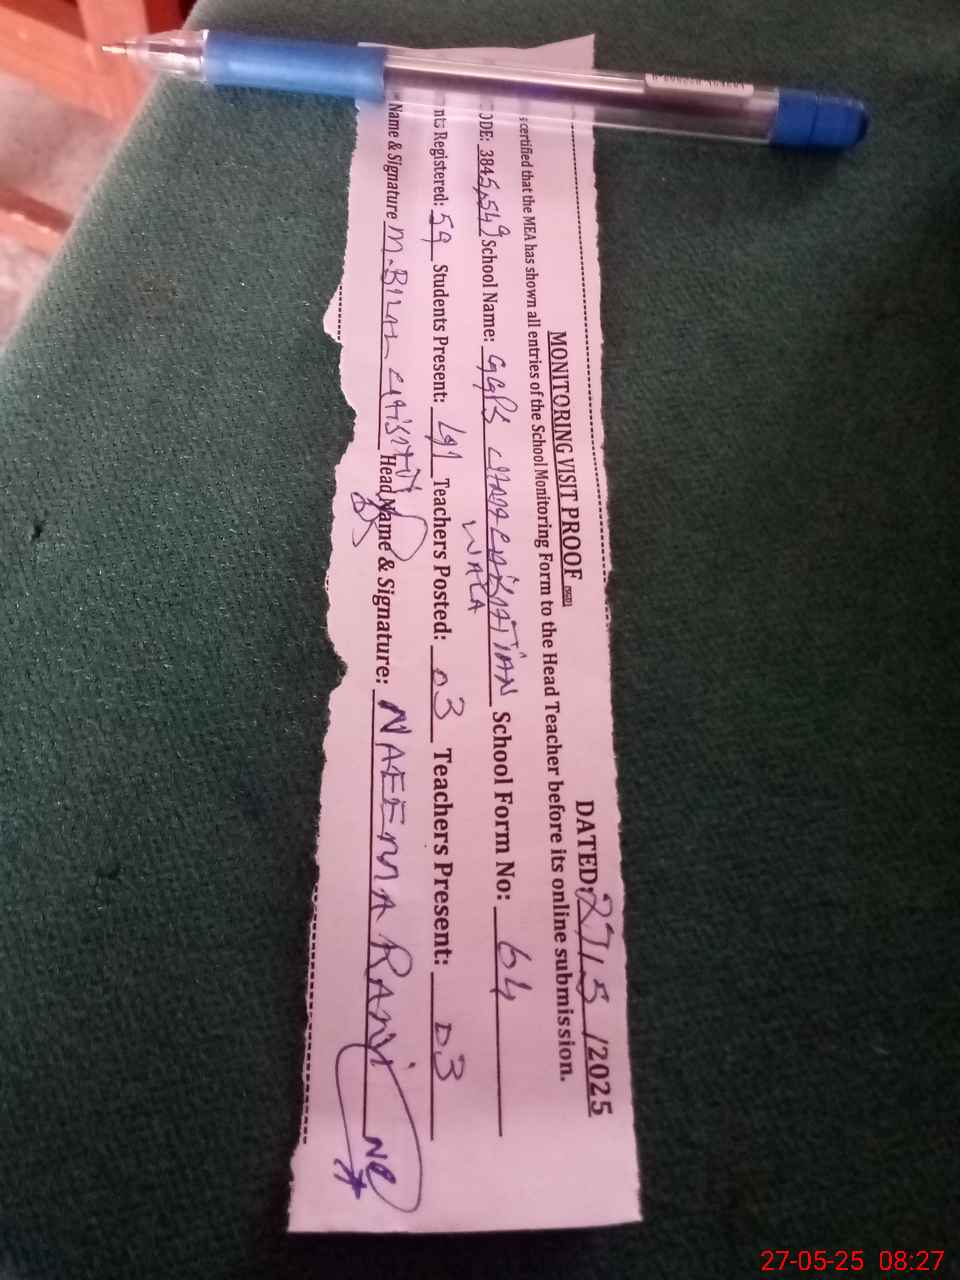 MONITORING VISIT PROOF DATED: 27/5/2025
s certified that the MEA has shown all entries of the School Monitoring Form to the Head Teacher before its online submission.
ODE: 3845 549 School Name: GGPS WALA School Form No: 64
nts Registered: 59 Students Present: 49 Teachers Posted: 03 Teachers Present: 03
Name & Signature M. BILAL Head Name & Signature: NAEEMA RANI
27-05-25 08:27